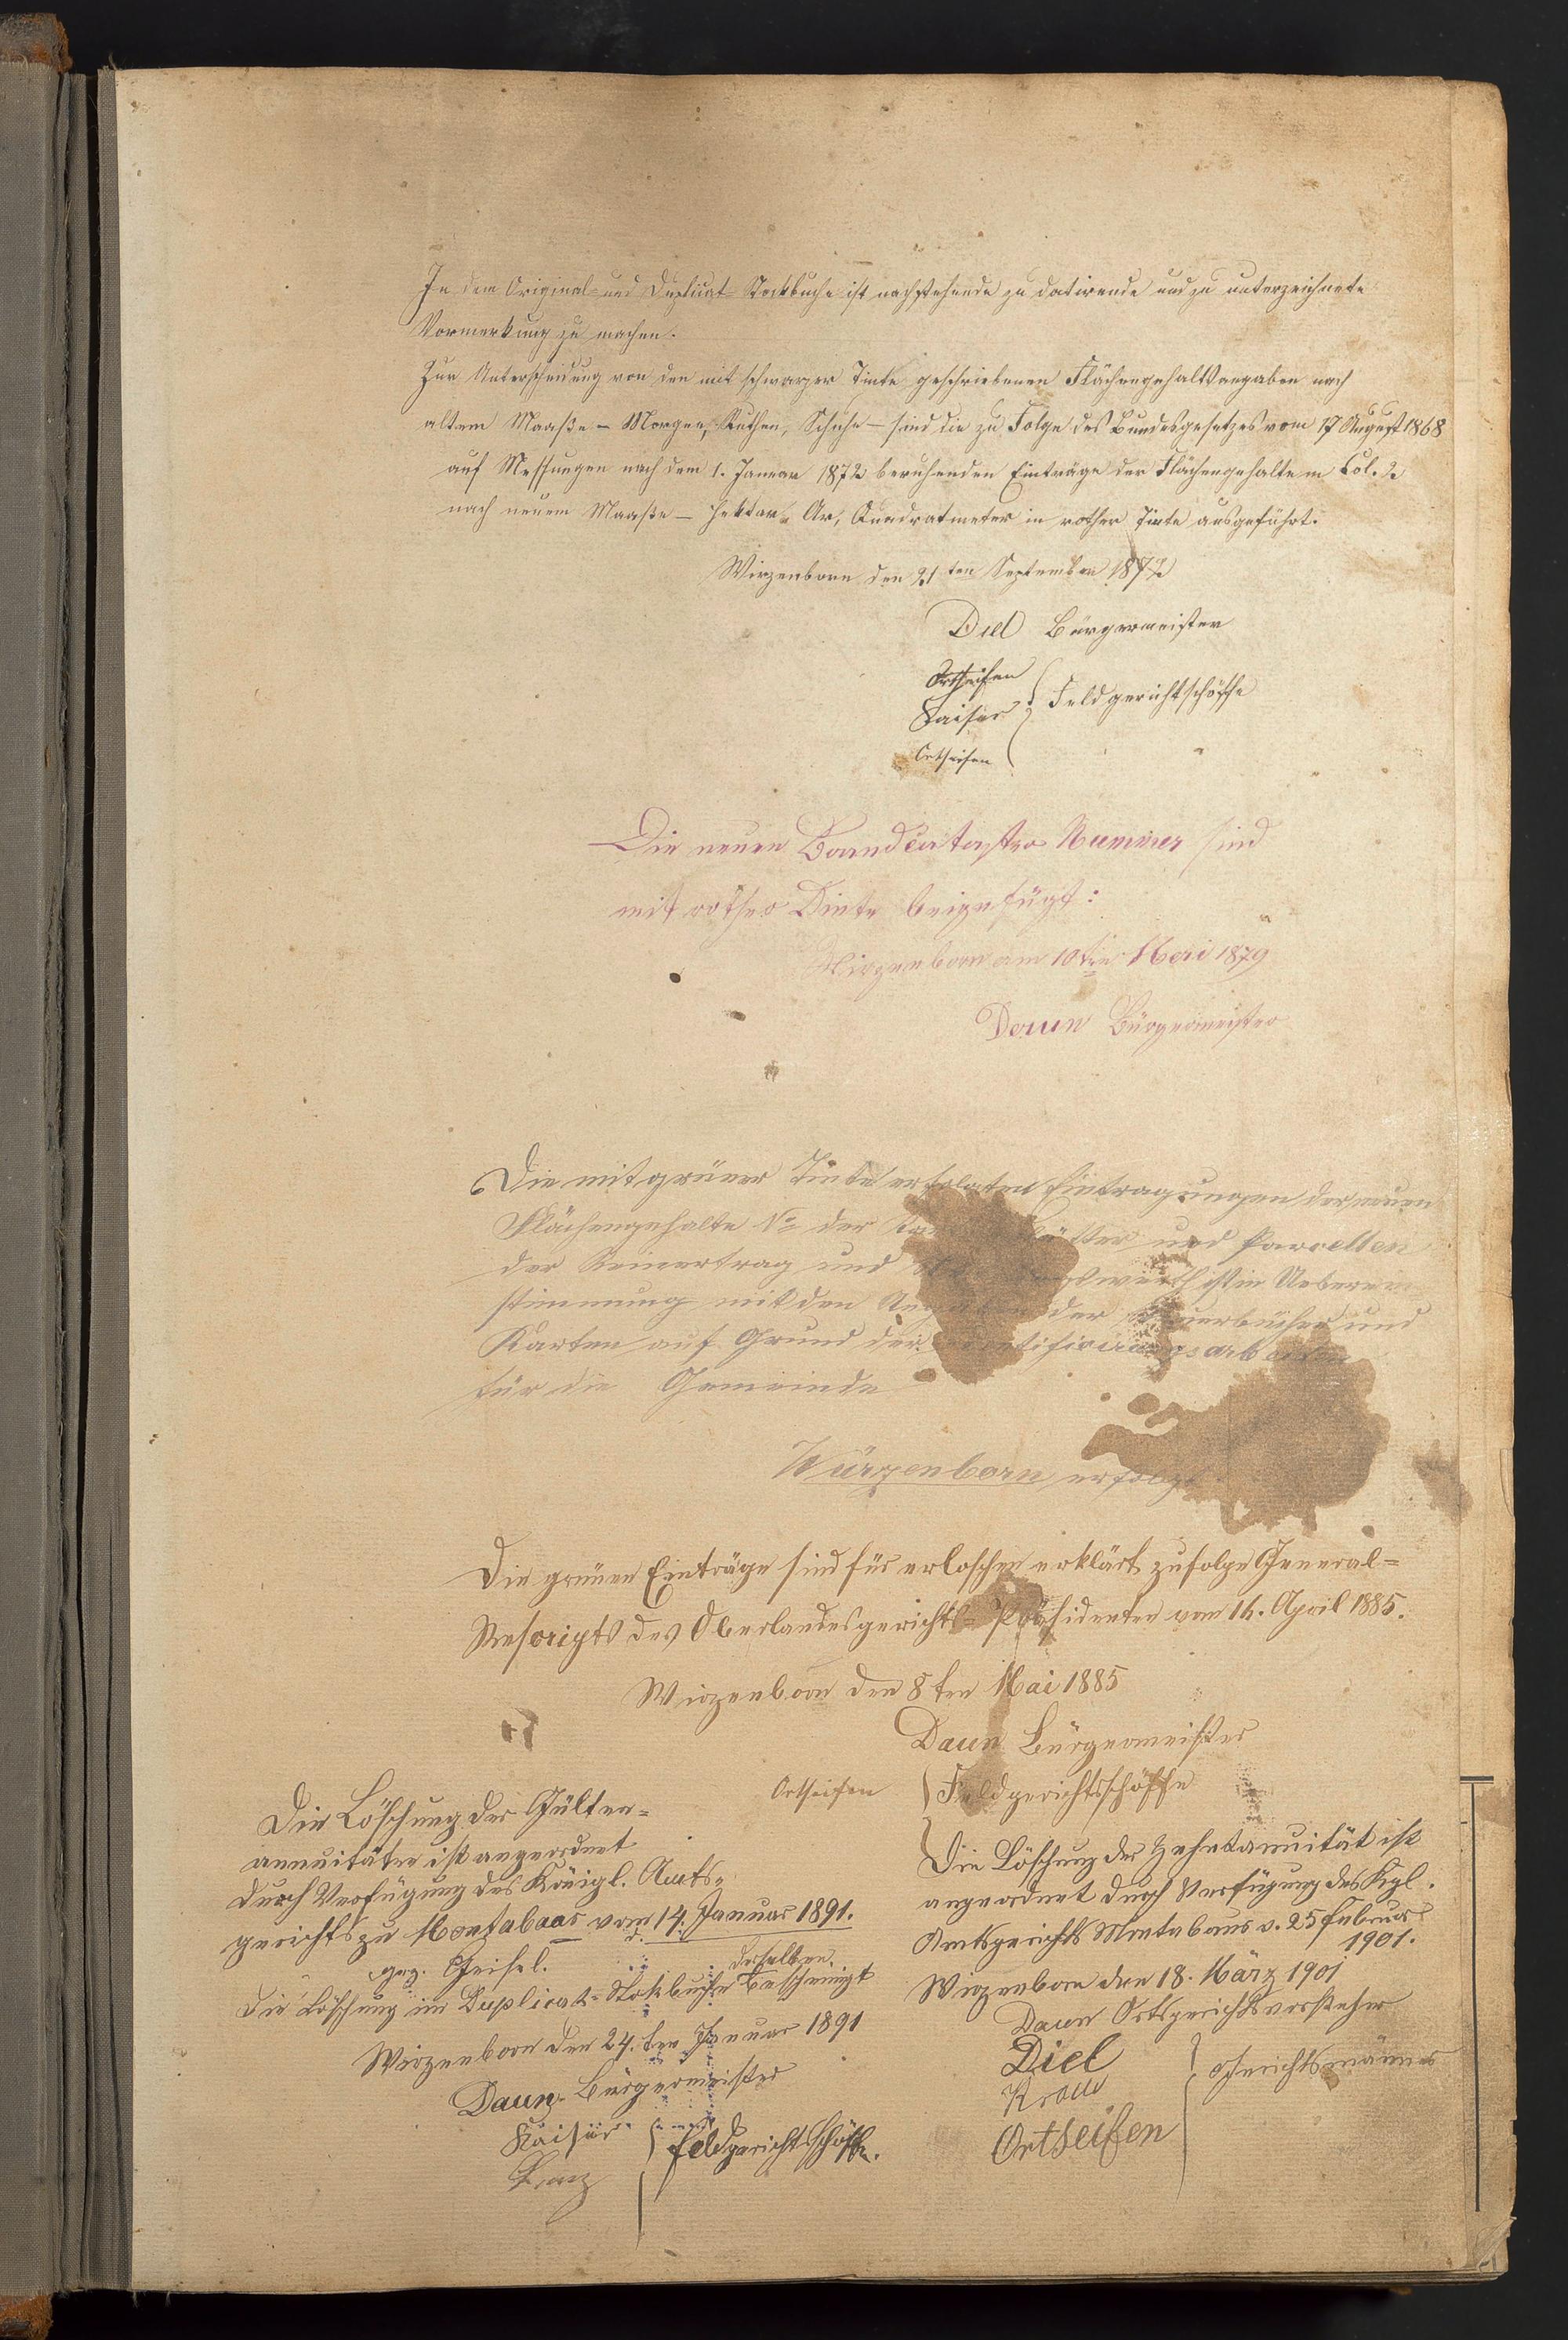 In dem Original- und Duplicat-Stockbuche ist nachstehende zu datirende und zu unterzeichnete
Vormerkung zu machen.
Zur Unterscheidung von den mit schwarzer Tinte geschriebenen Flächengehaltsangaben nach
altem Maaße – Morgen, Ruthen, Schuhe – sind die zu Folge des Bundesgesetzes vom 17 August 1868
auf Messungen nach dem 1. Januar 1872 beruhenden Einträge der Flächengehalte in Col. 2
nach neuem Maaße – Hektar, Ar, Quadratmeter in rother Tinte ausgeführt.
Wirzenborn den 21ten September 1872
Diel Bürgermeister
Ortseifen
Kaiser } Feldgerichtschöffe
Ortseifen
Die neuen Brandcataster Nummer sind
mit rother Dinte beigefügt:
Wirzenborn am 10ten Mai 1879
Daun Bürgermeister
Die mit grüner Tinte erfolgten Eintragungen der neuen
Flächengehalte No der und Parcellen
der Reinertrag und ist in Ueberein
stimmung mit den Angaben der und
Karten auf Grund der
für die Gemeinde
Würzenborn erfolgt
Die grünen Einträge sind für erloschen erklärt zufolge General=
Rescripts des Oberlandesgerichts=Präsidenten vom 14. April 1885.
Wirzenborn den 8ten Mai 1885
Daun Bürgermeister
Ortseifen } Feldgerichtsschöffe
Die Löschung der Gülten=
annuitäten ist angeordnet
durch Verfügung des Königl. Amts=
gerichts zu Montabaur vom 14. Januar 1891.
gez. Geisel.
derselben
Die Löschung im Duplicat-Stokbuche bescheinigt
Wirzenborn den 24.ten Januar 1891
Daun Bürgermeister
Kaiser } Feldgerichtsschöffe.
Die Löschung der Zehntanuität ist
angeordnet durch Verfügung des Kgl.
Amtsgerichts Montabaur v. 25 Februar
1901.
Wirzenborn den 18. März 1901
Daun Ortsgerichtsvorsteher
Diel } Gerichtsmänner
Ortseifen